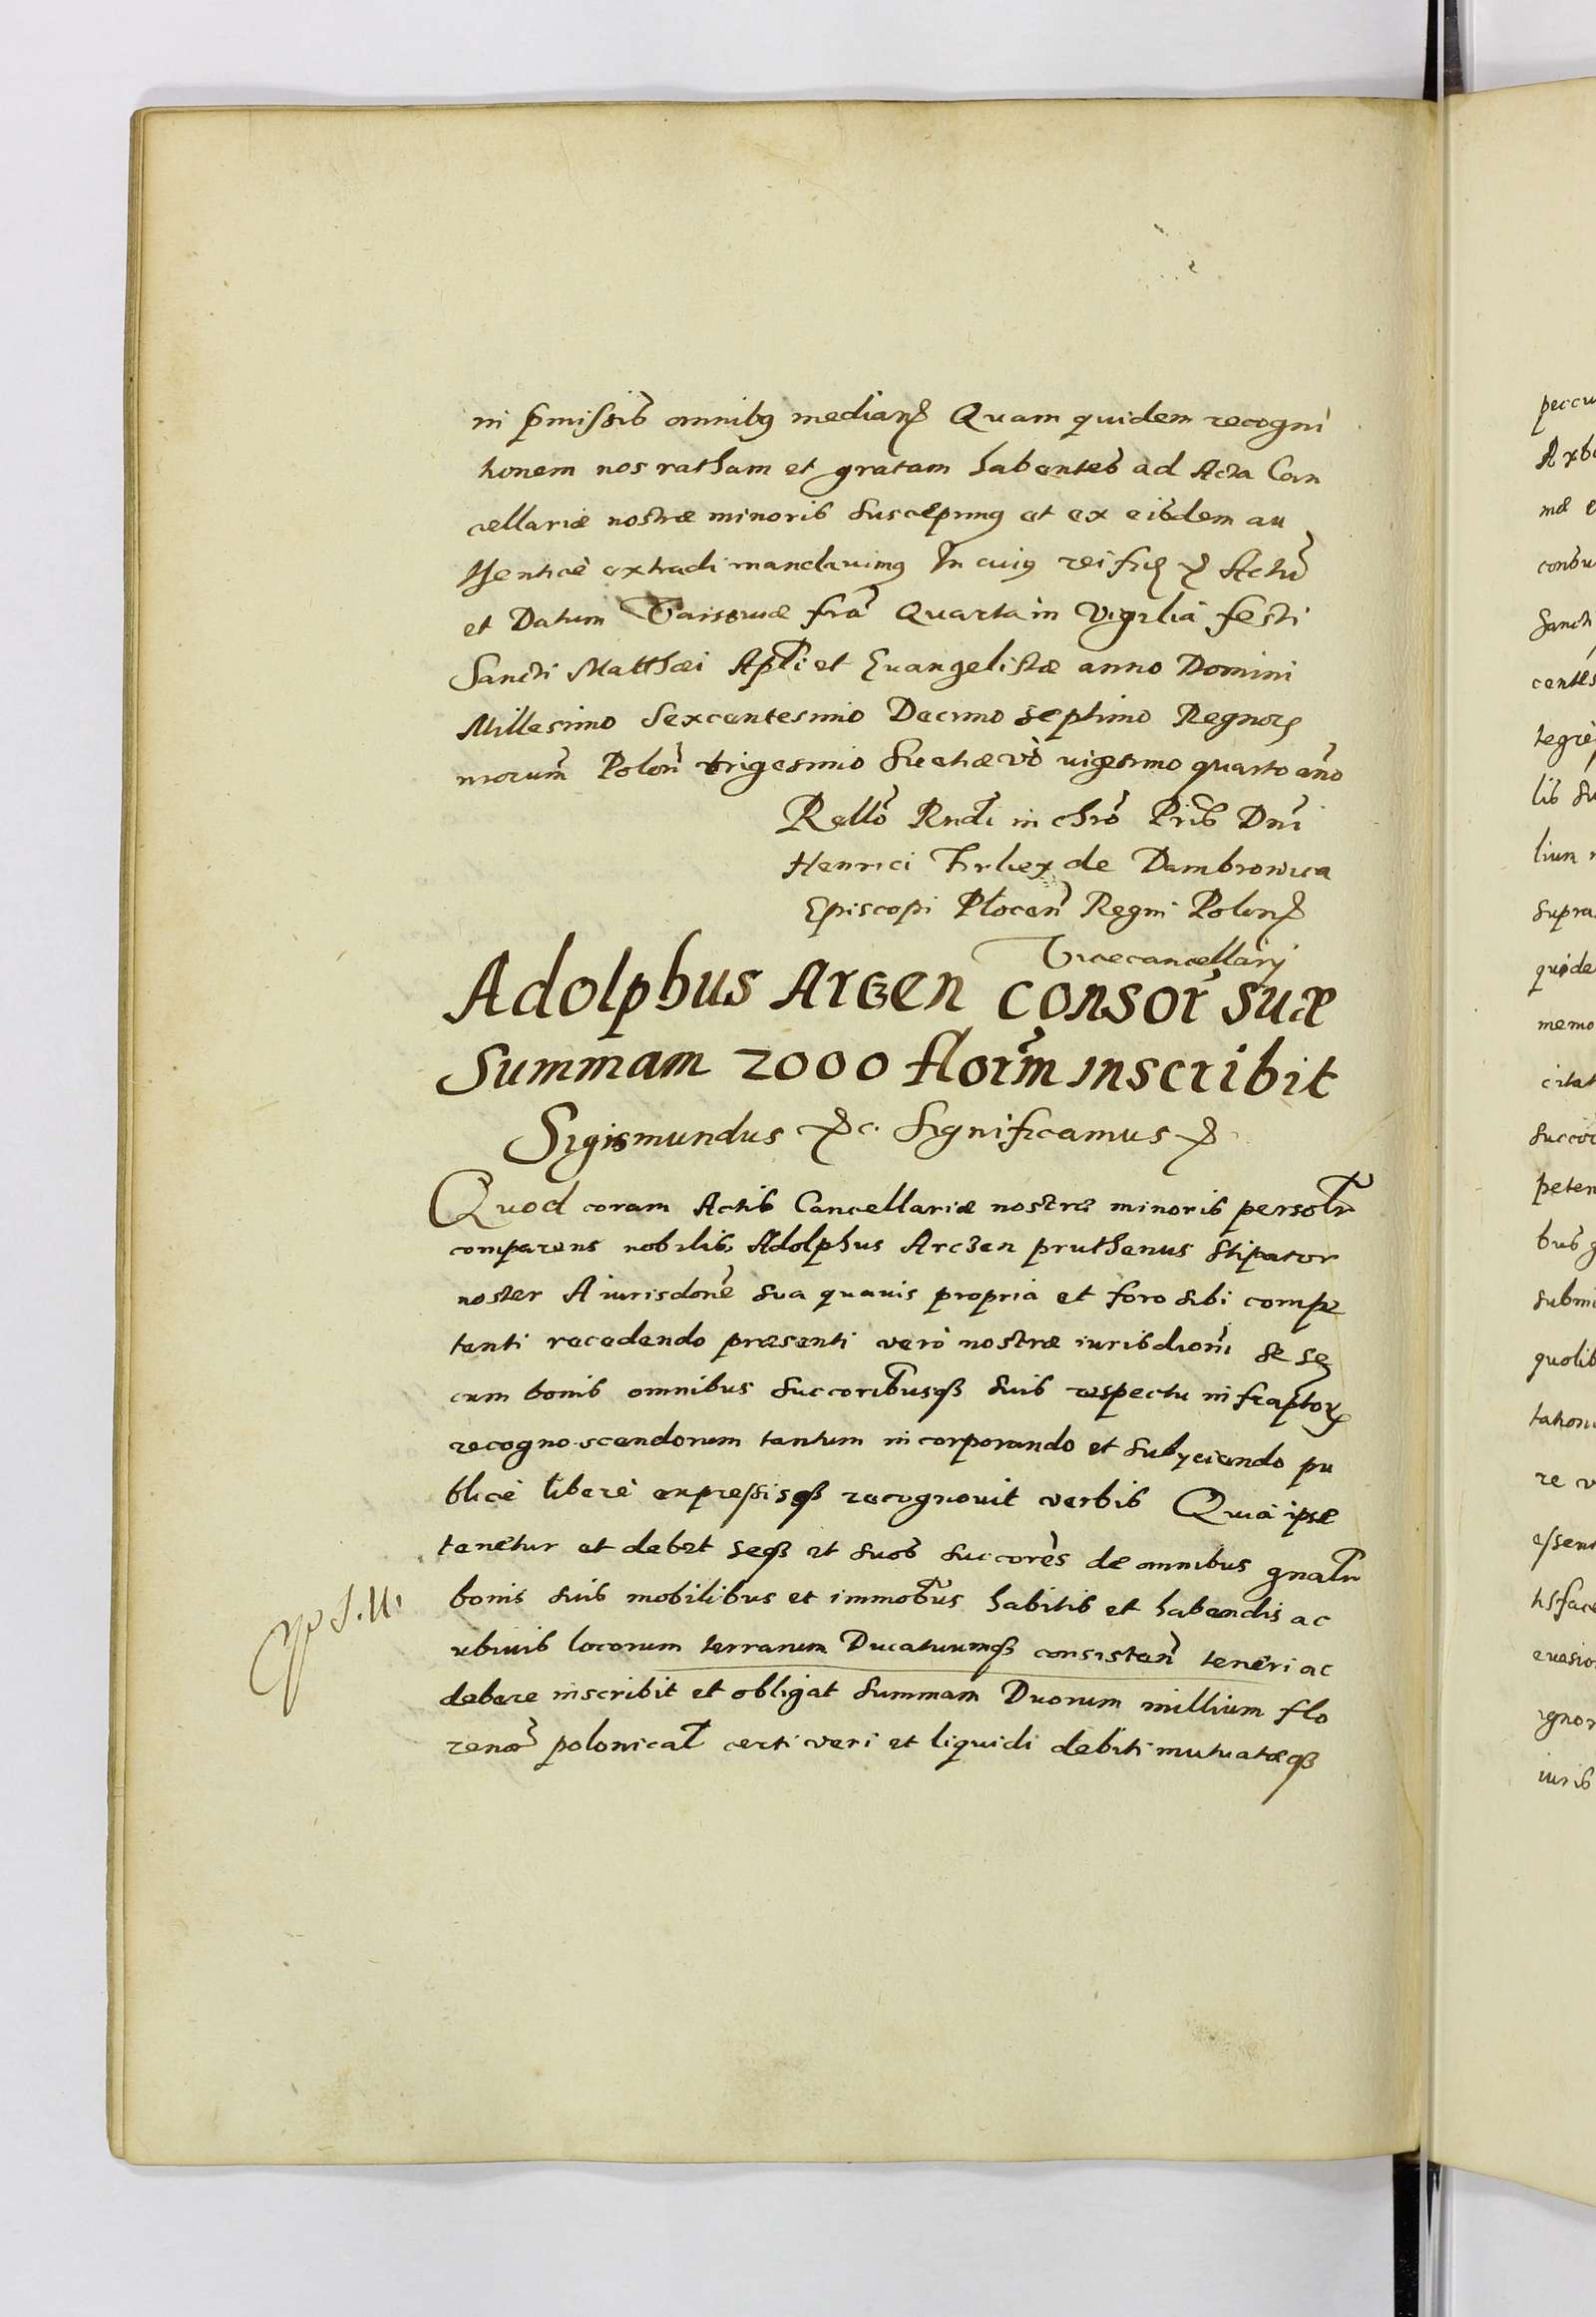 in p̃missis omnibꝯ median̄ Quam quidem recogni
tionem nos ratham et gratam habentes ad Acta Can
cellariæ nostræ minoris suscepimꝯ et ex eisdem au
thenticè extradi mandavimꝯ In cuiꝯ rei fid̄ &c Actũ
et Datum Varsoviæ fr̃a Quarta in Vigilia festi
Sancti Matthæi Ap̃li et Evangelistæ anno Domini
Millesimo Sexcentesimo Decimo septimo Regnoꝝ
nrorum̃ Polon̄ trigesimo Suetiæ vò vigesimo quarto año
Rellõ Rñdi in Chrõ Pr̃is Dñi
Henrici Firlej de Dambrowica
Episcopi Plocen̄ Regni Polon̄
Vicecancellarij
Adolphus Arcen consor̃ suæ
Summam 2000 florm̃ inscribit
Sigismundus &c. Significamus &
Quod coram Actis Cancellariæ nostræ minoris persolr̃
comparens nobilis Adolphus Arczen pruthenus Stipator
noster A iurisdone᷉ sua quavis propria et foro sibi compe
tenti recedendo præsenti verò nostræ iurisdioni᷉ se se
cum bonis omnibus succoribusqꝫ suis respectu infraptoꝝ
recognoscendorum tantum incorporando et subyciendo pu
blicè liberè expressisqꝫ recognovit verbis Quia ipse
tenetur et debet seqꝫ et suos succorès de omnibus gnalr̃
bonis suis mobilibus et immobus᷉ habitis et habendis ac
ubivis locorum terrarum Ducatuumqꝫ consisten̄ teneri ac
debere inscribit et obligat Summam Duorum millium flo
renor̃ polonical᷉ certi veri et liquidi debiti mutuatæqꝫ
peccu
Arb
mæ
Sancti
centes
tegrè
lis su
supra
quide
memo
citat
succor
peten
bus
submi
quolib
tation
re v
essen
tisface
evasio
ignor
iuris